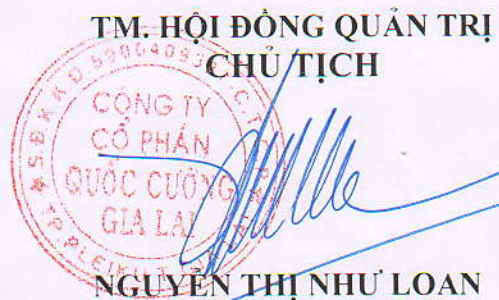 TM. HỘI ĐỒNG QUẢN TRỊ
CHỦ TỊCH
CÔNG TY
CỔ PHẦN
QUỐC CƯỜNG
GIA LAI
NGUYỄN THỊ NHƯ LOAN